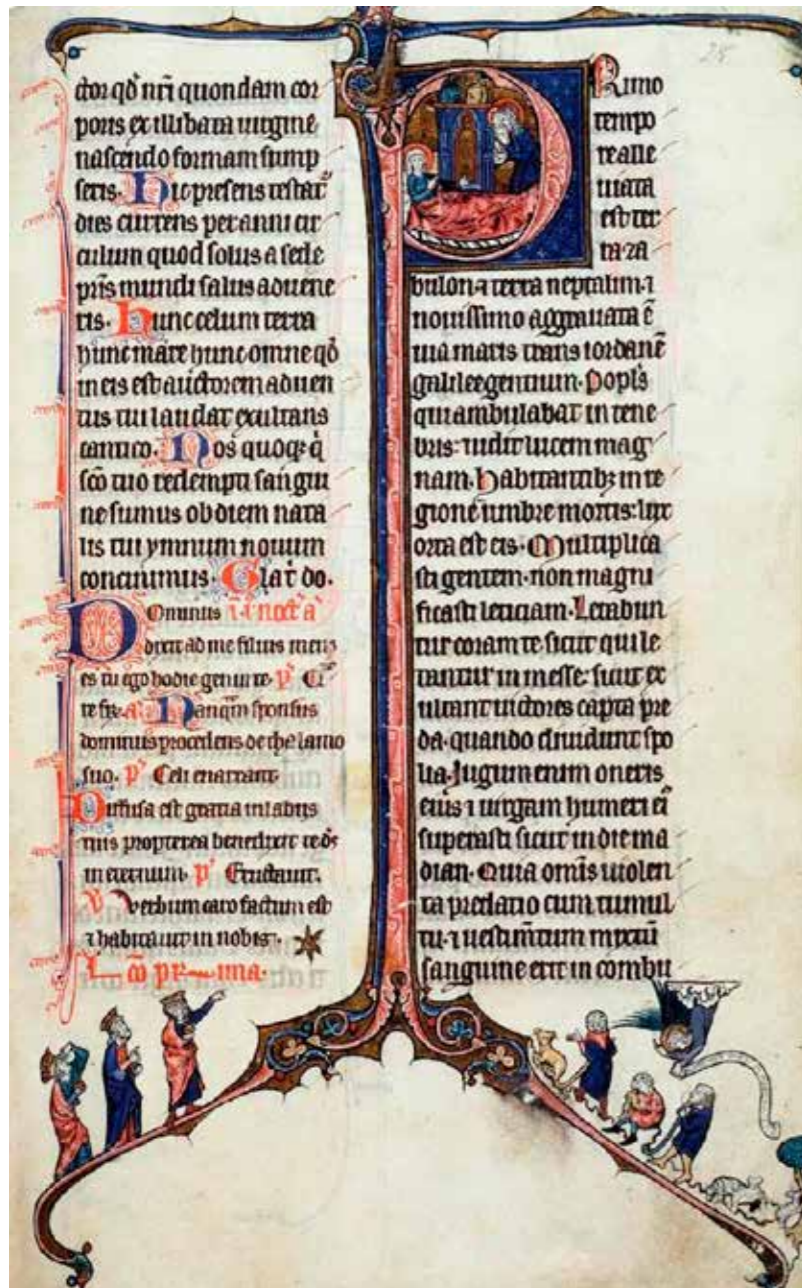 ctor qđ nr̄i quondam cor
poris ex illibata uirgine
nascendo formam sump
seris. Hic presens testat᷑
dies currens per anni cir
culum quod solus a sede
pr̄is mundi salus aduene
ris. Hunc celum terra
hunc mare hunc omne qđ
in eis est auctorem aduen
tus tui laudat exultans
cantico. Nos quoqꝫ q̇
sc̄o tuo redempti sangui
ne sumus ob diem nata
lis tui ymnum nouum
concinimus. Glar̄ do.
Dominus
dixit ad me filius meus
es tu ego hodie genui te. ps̄
Nanqm̄ sponsus
dominus procedens de thalamo
suo. ps̄ Celi enarrant.
Diffusa est gratia in labijs
tuis propterea benedixit te ds̄
in eternum. ps̄ Eructauit.
V Verbum caro factum est
⁊ habitauit in nobis.
Lc̄o prima.
28
Primo
tempo
re alle
uiata
est ter
ra za
bulon. ⁊ terra neptalim. ⁊
nouissimo aggrauata ē
uia maris trans iordanē
galilee gentium. Popl̄s
qui ambulabat in tene
bris: uidit lucem mag
nam. Habitantibꝫ in re
gione umbre mortis: lux
orta est eis. Multiplica
sti gentem. non magni
ficasti leticiam. Letabun
tur coram te sicut qui le
tantur in messe: sicut ex
ultant uictores capta pre
da. quando diuidunt spo
lia. Jugum enim oneris
eius ⁊ uirgam humeri ei᷒
superasti sicut in die ma
dian. Quia omnis uiolen
ta predatio cum tumul
tu. ⁊ uestim̄tum mixtū
sanguine erit in combu